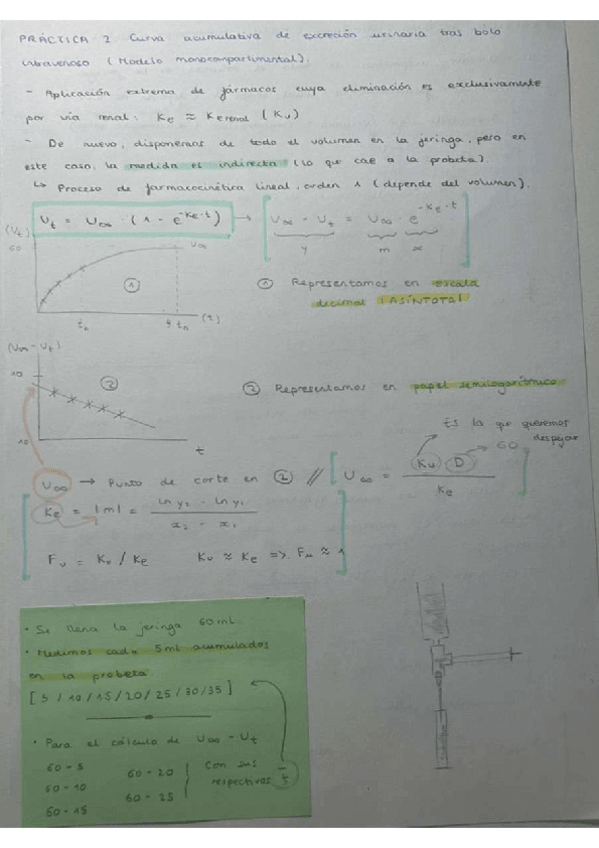 PRÁCTICA 2 Curva acumulativa de excreción urinaria tras bolo
intravenoso (Modelo monocompartimental).
- Aplicación extrema de fármacos cuya eliminación es exclusivamente
por vía renal: Ke ≈ Ke renal (Ku)
- De nuevo, disponemos de todo el volumen en la jeringa, pero en
este caso, la medida es indirecta (lo que cae a la probeta).
↳ Proceso de farmacocinética lineal, orden 1 (depende del volumen).
Ut = U∞ · (1 - e^-Ke·t) → [ U∞ - Ut = U∞ · e^-Ke·t ]
y m x
(Ut)
60
U∞
①
tn 4 tn (t)
① Representamos en escala
decimal (ASÍNTOTA)
(U∞ - Ut)
10
②
10
t
② Representamos en papel semilogarítmico
Es la que queremos
despejar
U∞ → Punto de corte en ② // [ U∞ = Ku · D / Ke ]
60
Ke = |m| = ln y2 - ln y1 / x2 - x1
Fu = Ku / Ke Ku ≈ Ke => Fu ≈ 1
• Se llena la jeringa 60ml
• Medimos cada 5ml acumulados
en la probeta
[ 5 / 10 / 15 / 20 / 25 / 30 / 35 ]
• Para el cálculo de U∞ - Ut
60 - 5
60 - 10
60 - 15
60 - 20
60 - 25
Con sus
respectivos t